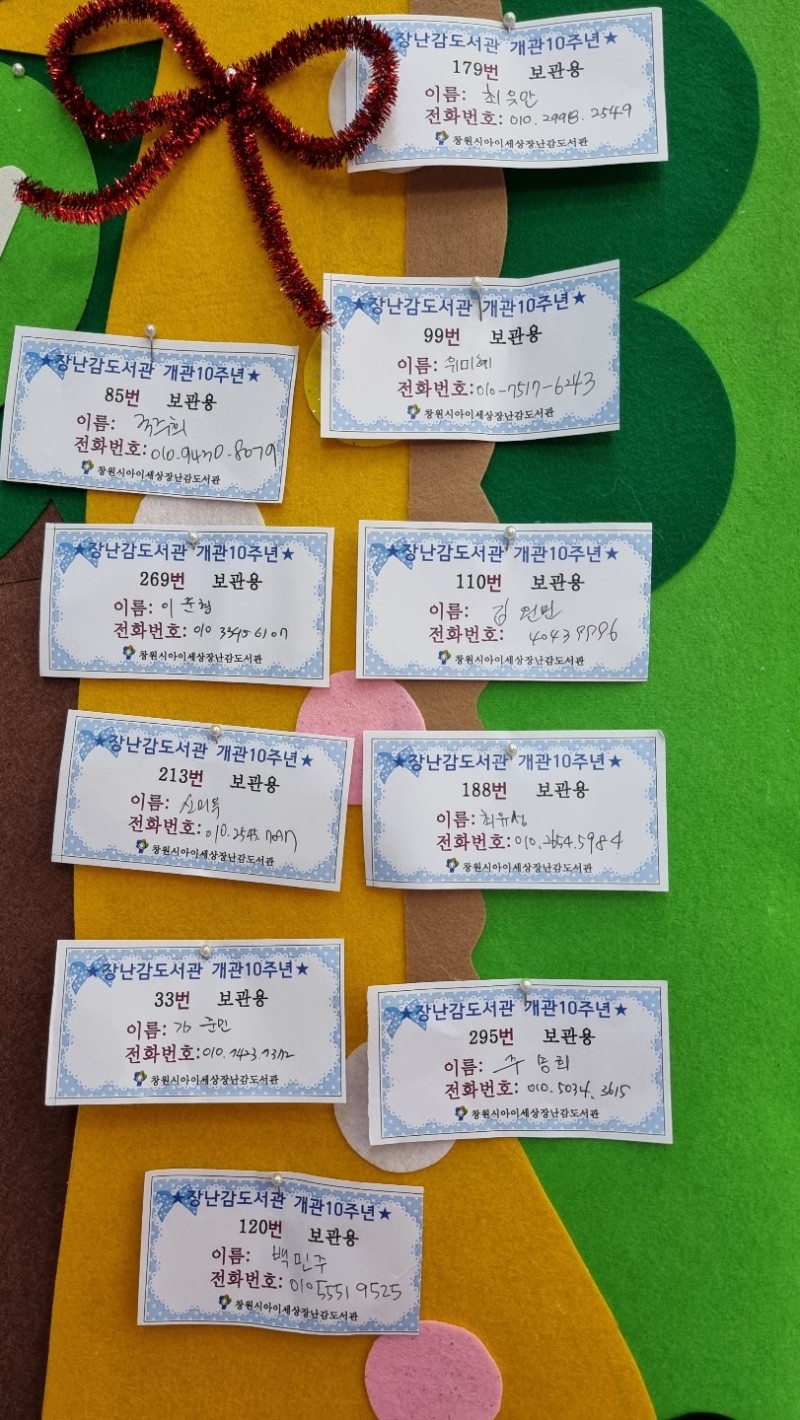 장난감도서관 개관10주년★
179번 보관용
이름: 최웃만
전화번호: 010.2998.2549
창원시아이세상장난감도서관
★장난감도서관 개관10주년★
99번 보관용
이름: 위미혜
전화번호: 010-7517-6243
창원시아이세상장난감도서관
★장난감도서관 개관10주년★
85번 보관용
이름:
전화번호: 010.9470.8079
창원시아이세상장난감도서관
★장난감도서관 개관10주년★
269번 보관용
이름: 이준협
전화번호: 010
창원시아이세상장난감도서관
★장난감도서관 개관10주년★
110번 보관용
이름: 김
전화번호:
창원시아이세상장난감도서관
★장난감도서관 개관10주년★
213번 보관용
이름: 신미욱
전화번호: 010.2543.
창원시아이세상장난감도서관
★장난감도서관 개관10주년★
188번 보관용
이름: 최유성
전화번호: 010.2654.5984
창원시아이세상장난감도서관
★장난감도서관 개관10주년★
33번 보관용
이름: 준민
전화번호: 010.7423.
창원시아이세상장난감도서관
★장난감도서관 개관10주년★
295번 보관용
이름: 주명희
전화번호: 010.5034.3615
창원시아이세상장난감도서관
★장난감도서관 개관10주년★
120번 보관용
이름: 백민주
전화번호: 010 5551 9525
창원시아이세상장난감도서관